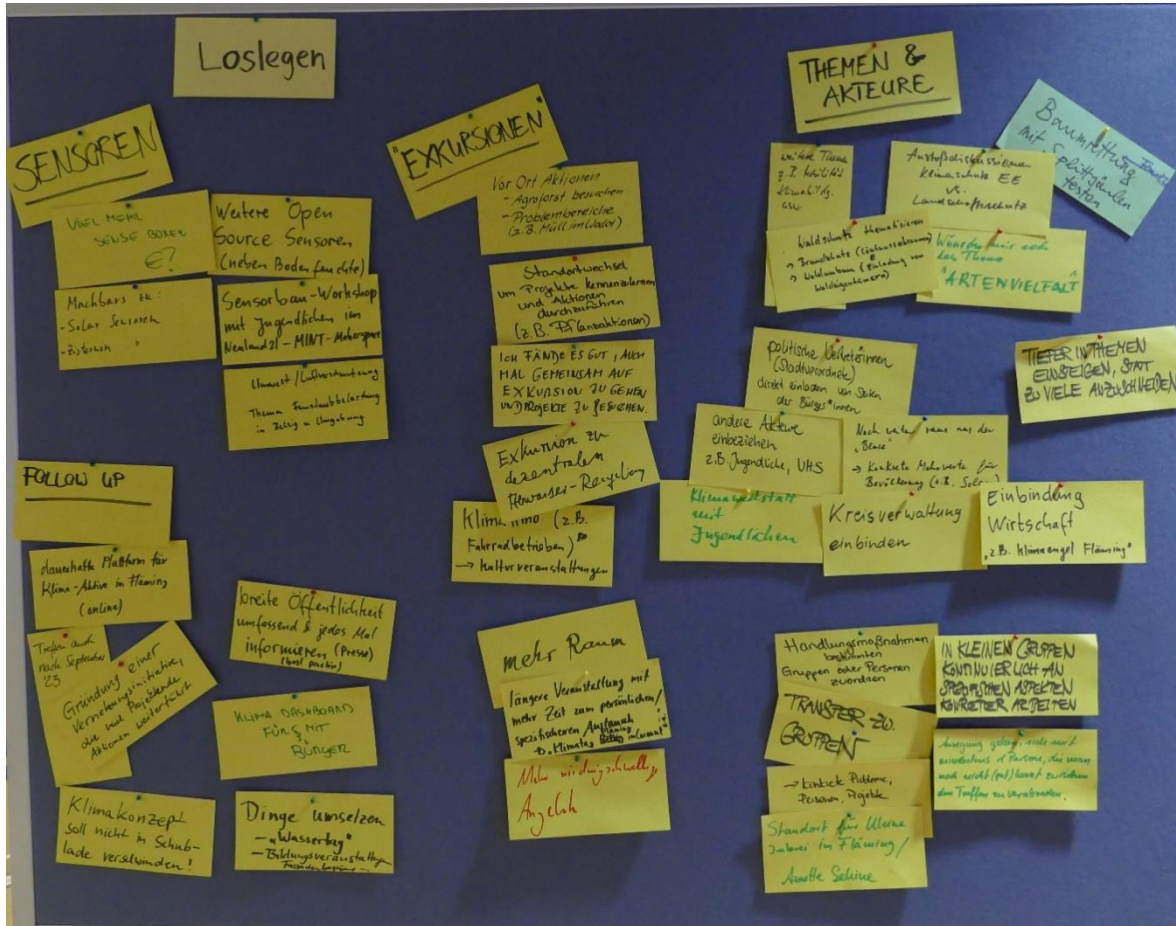 Loslegen
SENSOREN
VIEL MEHR
SENSE BOXEN
€?
Weitere Open
Source Sensoren
(neben Bodenfeuchte)
Machbars zu:
- Solar Sensoren
- Zisternen "
Sensorbau-Workshop
mit Jugendlichen im
Neuland21-MINT-Makerspace
Umwelt/Luftverschmutzung
Thema Feinstaubbelastung
in Belzig u Umgebung
FOLLOW UP
dauerhafte Plattform für
Klima-Aktive in Fläming
(online)
Treffen auch
nach September
23
Gründung einer
Vernetzungsinitiative,
die und Projektende
Aktionen weiterführt
breite Öffentlichkeit
umfassend & jedes Mal
informieren (Presse)
KLIMA DASHBOARD
FÜR & MIT
BÜRGER
Klimakonzept
soll nicht in Schub-
lade verschwinden!
Dinge umsetzen
- "Wassertag"
- Bildungsveranstaltungen
"EXKURSIONEN"
Vor Ort Aktionen
- Agroforst besuchen
- Problembereiche
(z.B. Müll im Wald)
Standortwechsel
um Projekte kennenzulernen
und Aktionen
durchzuführen
(z.B. Pflanzaktionen)
ICH FÄNDE ES GUT, AUCH
MAL GEMEINSAM AUF
EXKURSION ZU GEHEN
UND PROJEKTE ZU BESUCHEN.
Exkursion zu
dezentralem
Abwasser-Recycling
Klimakino (z.B.
Fahrradbetrieben)
→ Kulturveranstaltungen
mehr Raum
längere Veranstaltung mit
mehr Zeit zum persönlichen/
spezifischeren Austausch
Mehr niedrigschwellige
Angebote
THEMEN &
AKTEURE
Baumrettung
mit Splittsäulen
testen
weitere Themen
z.B. Mobilität
usw.
Anstoßdiskussionen
Klimaschutz EE
vs.
Landschaftsschutz
Waldschutz thematisieren
→ Brandschutz
→ Waldumbau (Einladung von
Waldeigentümern)
Wünsche mir noch
das Thema
"ARTENVIELFALT"
politische Vertreterinnen
(Stadtverordnete)
direkt einladen von Seiten
der Bürger*innen
TIEFER IN THEMEN
EINSTEIGEN, STATT
ZU VIELE ANZUSCHNEIDEN
andere Akteure
einbeziehen
z.B. Jugendliche, VHS
Noch weiter raus aus der
→ Konkrete Mehrwerte für
Bevölkerung (z.B. Solar)
Klimawerkstatt
mit
Jugendlichen
Kreisverwaltung
einbinden
Einbindung
Wirtschaft
"z.B. Klimaengel Fläming"
Handlungsmaßnahmen
bestimmten
Gruppen oder Personen
zuordnen
IN KLEINEN GRUPPEN
KONTINUIERLICH AN
SPEZIFISCHEN ASPEKTEN
KONKRETER ARBEITEN
TRANSFER ZU
GRUPPEN
→ konkrete Probleme,
Personen, Projekte
Anregung geben, sich mit
mindestens 1 Person, die man
noch nicht (gut) kennt zwischen
den Treffen zu verabreden.
Standort für kleine
Imkerei im Fläming/
Annette